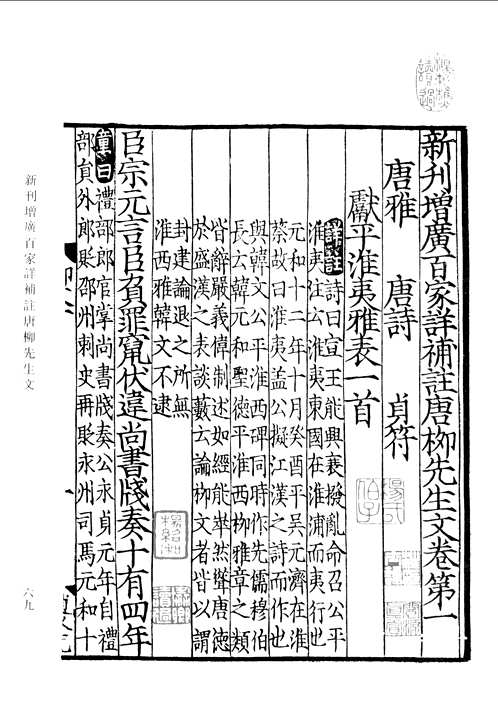 新刊增廣百家詳補註唐栁先生文卷第一
唐雅 唐詩 貞符
獻平淮夷雅表一首
詳註 詩曰宣王能興衰撥亂命召公平
淮夷注公淮夷東國在淮浦而夷行也
元和十二年十月癸酉平吳元濟在淮
蔡故曰淮夷盖公擬江漢之詩而作也
與韓文公平淮西碑同時作先儒穆伯
長云韓元和聖德平淮西栁雅章之類
皆辭嚴義偉制述如經能崒然聳唐德
於盛漢之表談藪云論栁文者皆以謂
封建論退之所無
淮西雅韓文不逮
臣宗元言臣負罪竄伏違尚書牋奏十有四年
童曰 禮部郎官掌尚書牋奏公永貞元年自禮
部貟外郎貶邵州刺史再貶永州司馬元和十
新刊增廣百家詳補註唐柳先生文 一
六九